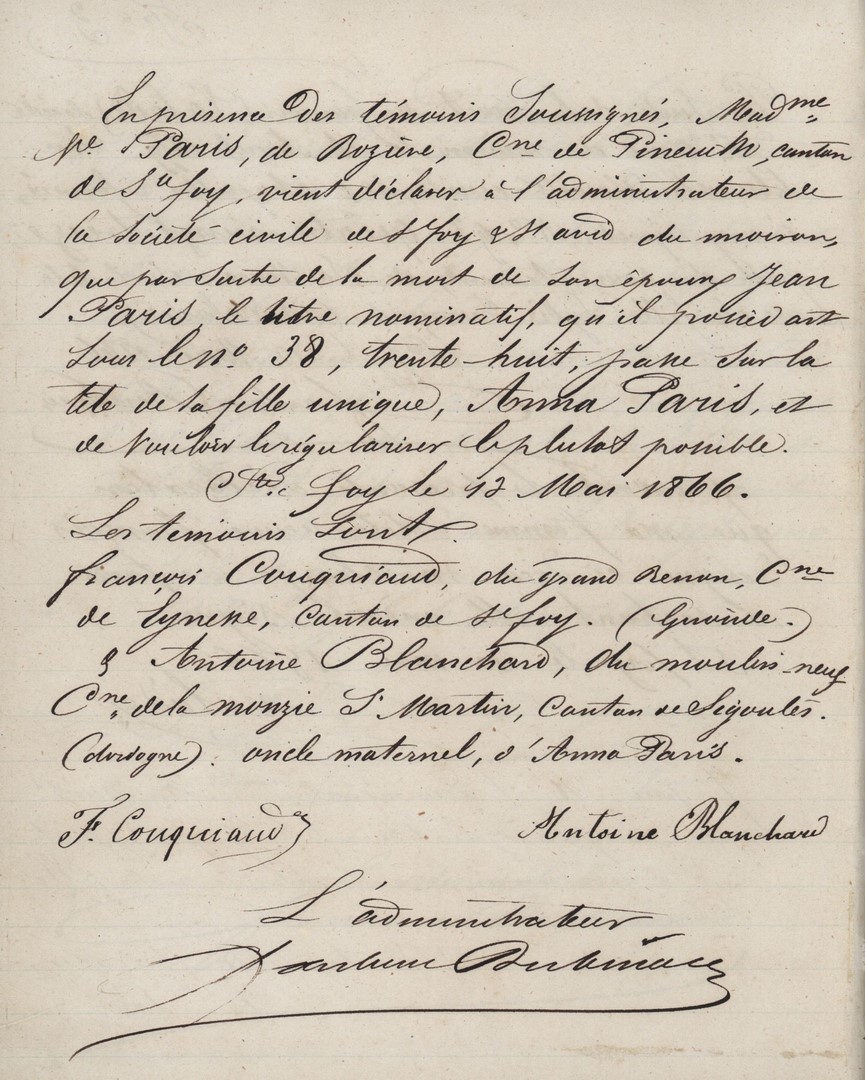 En présence des témoins Soussignés, Mad.me
Ve Paris, de Rozière, Cne de Pineuilh, canton
de Ste foy, vient déclarer à l'administrateur de
la société civile de Ste foy & St avid du moiron,
que par suite de la mort de son époux Jean
Paris, le titre nominatif, qu'il possédait
sous le no. 38, trente-huit, passe sur la
tête de sa fille unique, Anna Paris, et
de vouloir le régulariser le plutot possible.
Ste foy le 12 Mai 1866.
Les témoins sont
françois Couquiaud, du grand Renon, Cne
de Eynesse, canton de Ste foy. (Gironde.)
& Antoine Blanchard, du moulin-neuf
Cne de la monzie St Martin, canton de Segoulés.
(dordogne). oncle maternel, d'Anna Paris.
F. Couquiaud
Antoine Blanchard
L'administrateur